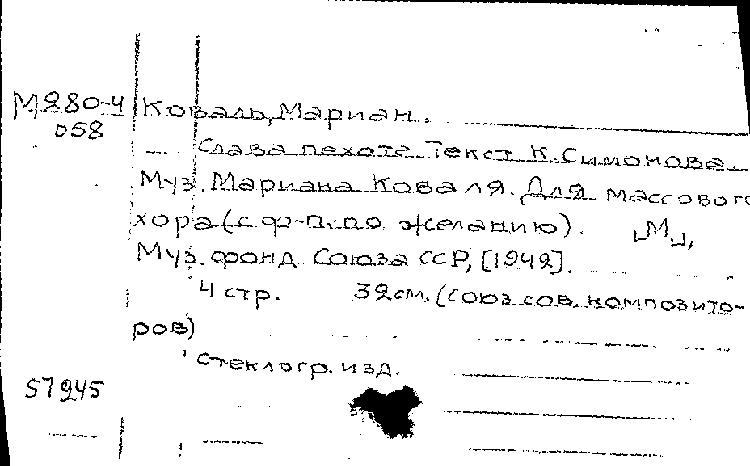 М280-4 Коваль, Мариан.
058
Слава пехоте. Текст К. Симонова.
Муз. Мариана Коваля. Для массового
хора (с ф-п. по желанию). [М.],
Муз. фонд Союза ССР, [1942].
4 стр. 32 см. (Союз сов. композито-
ров)
Стеклогр. изд.
57245